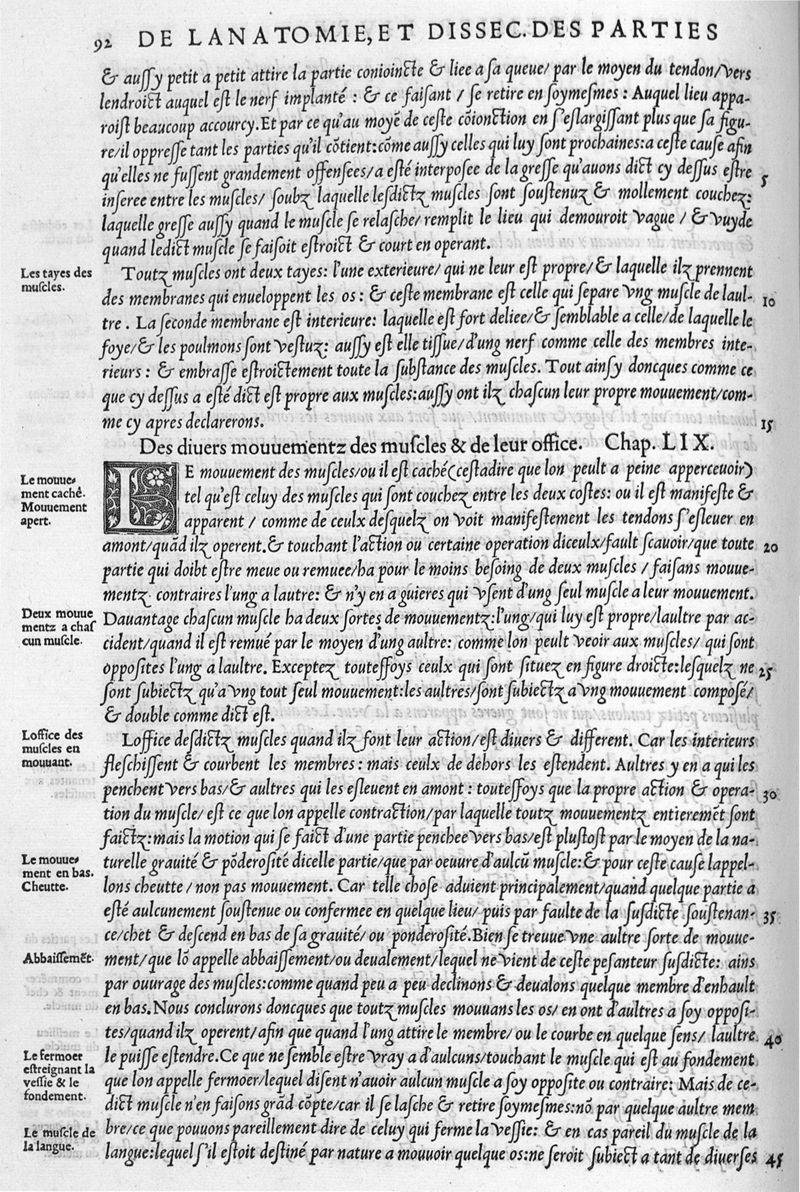 92 DE LANATOMIE, ET DISSEC. DES PARTIES
& aussy petit a petit attire la partie conioincte & liee a sa queue/ par le moyen du tendon/vers
lendroict auquel est le nerf implanté : & ce faisant / se retire en soymesmes : Auquel lieu appa-
roist beaucoup accourcy. Et par ce qu'au moyẽ de ceste cõionction en s'eslargissant plus que sa figu-
re/il oppresse tant les parties qu'il cõtient:cõme aussy celles qui luy sont prochaines:a ceste cause afin
qu'elles ne fussent grandement offensees/a esté interposee de la gresse qu'auons dict cy dessus estre
5
inseree entre les muscles/ soubz laquelle lesdictz muscles sont soustenuz & mollement couchez:
laquelle gresse aussy quand le muscle se relasche/ remplit le lieu qui demouroit vague / & vuyde
quand ledict muscle se faisoit estroict & court en operant.
Les tayes des
muscles.
Toutz muscles ont deux tayes: l'une exterieure/ qui ne leur est propre/& laquelle ilz prennent
des membranes qui enueloppent les os : & ceste membrane est celle qui separe vng muscle de laul-
10
tre . La seconde membrane est interieure: laquelle est fort deliee/& semblable a celle/de laquelle le
foye/& les poulmons sont vestuz: aussy est elle tissue/d'ung nerf comme celle des membres inte-
rieurs : & embrasse estroictement toute la substance des muscles. Tout ainsy doncques comme ce
que cy dessus a esté dict est propre aux muscles:aussy ont ilz chascun leur propre mouuement/com-
me cy apres declarerons.
15
Des diuers mouuementz des muscles & de leur office. Chap. LIX.
Le mouue-
ment caché.
Mouuement
apert.
LE mouuement des muscles/ou il est caché(cestadire que lon peult a peine apperceuoir)
tel qu'est celuy des muscles qui sont couchez entre les deux costes: ou il est manifeste &
apparent / comme de ceulx desquelz on voit manifestement les tendons s'esleuer en
amont/quãd ilz operent.& touchant l'action ou certaine operation diceulx/fault scauoir/que toute
20
partie qui doibt estre meue ou remuee/ha pour le moins besoing de deux muscles / faisans mouue-
mentz contraires l'ung a lautre: & n'y en a guieres qui vsent d'ung seul muscle a leur mouuement.
Deux mouue
mentz a chas
cun muscle.
Dauantage chascun muscle ha deux sortes de mouuementz:l'ung/qui luy est propre/laultre par ac-
cident/quand il est remué par le moyen d'ung aultre: comme lon peult veoir aux muscles/ qui sont
opposites l'ung a laultre. Exceptez touteffoys ceulx qui sont situez en figure droicte:lesquelz ne
25
sont subiectz qu'a vng tout seul mouuement:les aultres/sont subiectz a vng mouuement composé/
& double comme dict est.
Loffice des
muscles en
mouuant.
Loffice desdictz muscles quand ilz font leur action/est diuers & different. Car les interieurs
fleschissent & courbent les membres : mais ceulx de dehors les estendent. Aultres y en a qui les
penchent vers bas/& aultres qui les esleuent en amont : touteffoys que la propre action & opera-
30
tion du muscle/ est ce que lon appelle contraction/par laquelle toutz mouuementz entieremẽt sont
faictz:mais la motion qui se faict d'une partie penchee vers bas/est plustost par le moyen de la na-
Le mouue-
ment en bas.
Cheutte.
turelle grauité & põderosité dicelle partie/que par oeuure d'aulcũ muscle:& pour ceste cause lappel-
lons cheutte / non pas mouuement. Car telle chose aduient principalement/quand quelque partie a
esté aulcunement soustenue ou confermee en quelque lieu/ puis par faulte de la susdicte soustenan-
35
ce/chet & descend en bas de sa grauité/ ou ponderosité. Bien se treuue vne aultre sorte de mouue-
Abbaissemẽt.
ment/ que lõ appelle abbaissement/ou deualement/lequel ne vient de ceste pesanteur susdicte: ains
par ouurage des muscles:comme quand peu a peu declinons & deualons quelque membre d'enhault
en bas. Nous conclurons doncques que toutz muscles mouuans les os/ en ont d'aultres a soy opposi-
tes/quand ilz operent/afin que quand l'ung attire le membre/ ou le courbe en quelque sens/ laultre
40
Le fermoer
estreignant la
vessie & le
fondement.
le puisse estendre. Ce que ne semble estre vray a d'aulcuns/touchant le muscle qui est au fondement
que lon appelle fermoer/lequel disent n'auoir aulcun muscle a soy opposite ou contraire: Mais de ce-
dict muscle n'en faisons grãd cõpte/car il se lasche & retire soymesmes:nõ par quelque aultre mem
Le muscle de
la langue.
bre/ce que pouuons pareillement dire de celuy qui ferme la vessie: & en cas pareil du muscle de la
langue:lequel s'il estoit destiné par nature a mouuoir quelque os:ne seroit subiect a tant de diuerses
45